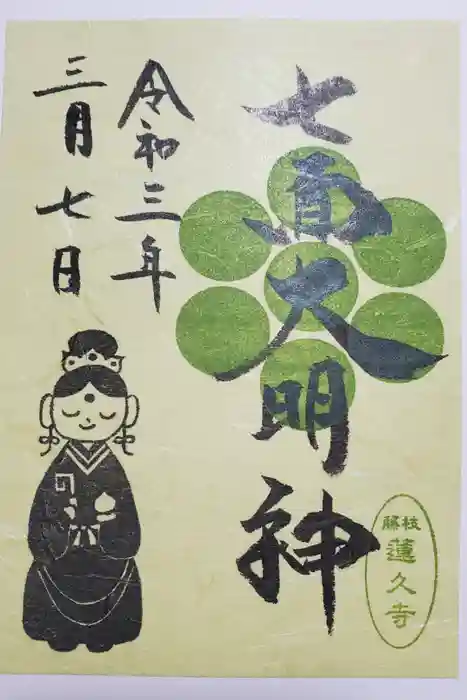 七面大明神
令和三年
三月七日
藤枝
蓮久寺